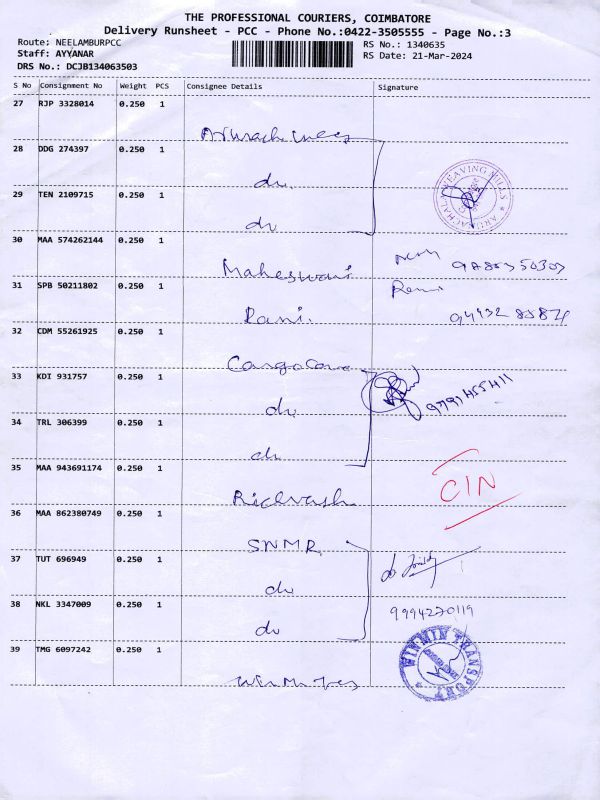 THE PROFESSIONAL COURIERS, COIMBATORE
Delivery Runsheet - PCC - Phone No.:0422-3505555 - Page No.:3
Route: NEELAMBURPCC
Staff: AYYANAR
DRS No.: DCJB134063503
RS No.: 1340635
RS Date: 21-Mar-2024
S No Consignment No Weight PCS Consignee Details Signature
27 RJP 3328014 0.250 1
28 DDG 274397 0.250 1
du
29 TEN 2109715 0.250 1
du
30 MAA 574262144 0.250 1
Maheswari
31 SPB 50211802 0.250 1
Rani.
32 CDM 55261925 0.250 1
33 KDI 931757 0.250 1
du
9791455411
34 TRL 306399 0.250 1
du
35 MAA 943691174 0.250 1
CIN
36 MAA 862380749 0.250 1
SNMR
37 TUT 696949 0.250 1
du
38 NKL 3347009 0.250 1
du
9994220119
39 TMG 6097242 0.250 1
WINWIN TRANSPORT